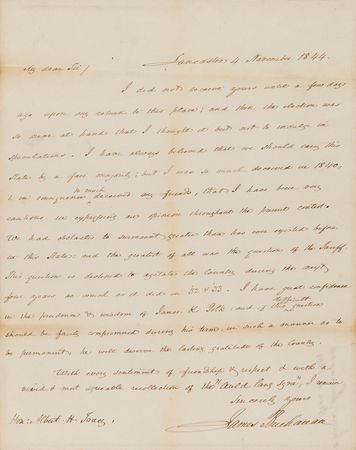 Lancaster 4 November 1844.
My dear Sir/
I did not receive yours until a few days
ago upon my return to this place; and then the election was
so near at hand that I thought it best not to indulge in
speculations. I have always believed that we should carry this
State by a fair majority; but I was so much deceived in 1840,
& in consequence so much deceived my friends, that I have been very
cautious in expressing an opinion throughout the present contest.
We had obstacles to surmount greater than has ever existed before
in this State: and the greatest of all was the question of the Tariff.
This question is destined to agitate the Country during the next
four years as much as it did in 32 & 33. I have great confidence
in the prudence & wisdom of James K. Polk: and if this difficult question
should be fairly compromised during his term, in such a manner as to
be permanent, he will deserve the lasting gratitude of the Country.
With every sentiment of friendship & respect & with a
vivid & most agreeable recollection of the "Auld Lang Syne", I remain
Sincerely yours
James Buchanan
Hon: Albert H. Tracy.